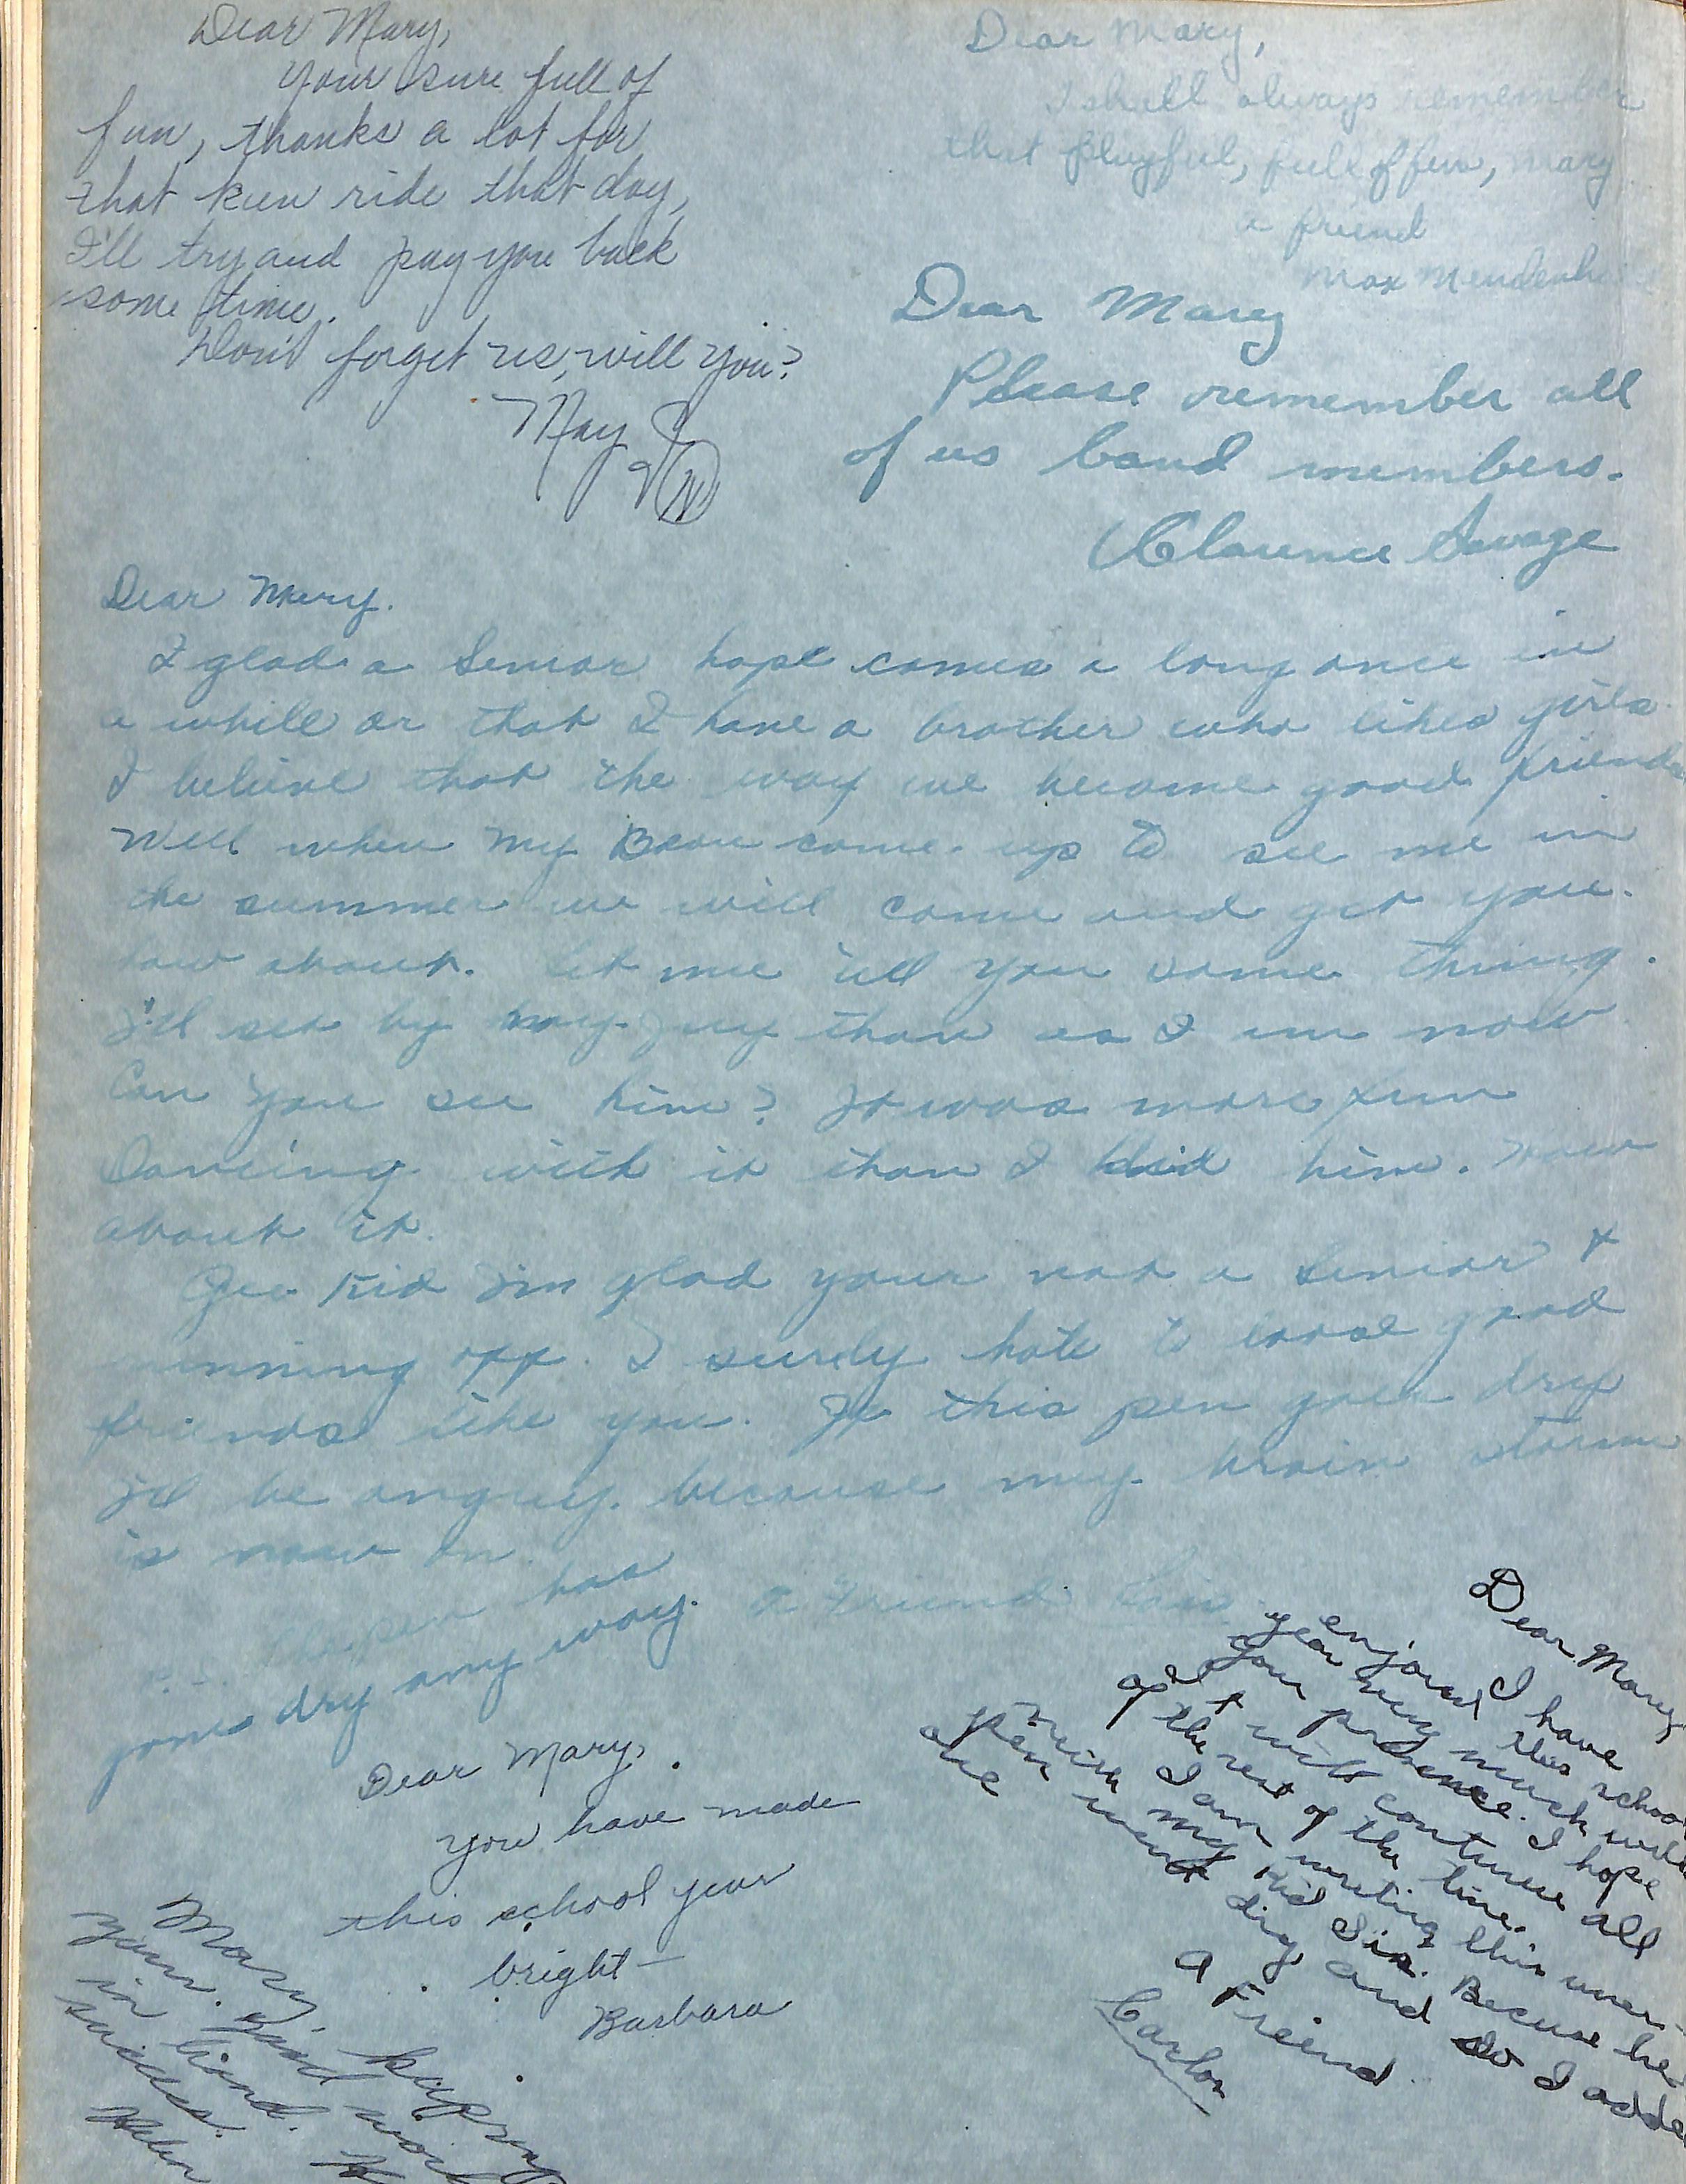 Dear Mary,
Your sure full of
fun, thanks a lot for
that keen ride that day,
I'll try and pay you back
some time.
Don't forget us, will you?
May
Dear Mary,
I shall always remember
that playful, full of fun, Mary
a friend
Max Mendenhall
Dear Mary
Please remember all
of us band members.
Clarence Savage
Dear Mary.
I glad a Senior hope comes a long once in
a while or that I have a brother who likes girls.
I believe that the way we became good friends
Well when my Beau come up to see me in
the summer we will come and get you.
how about. Let me tell you some thing.
I'll set by my guy than as I am now
Can you see him? It was more fun
Dancing with it than I did him. How
about it.
Gee Kid I'm glad your not a Senior &
running off. I surely hate to loose good
friends like you. If this pen goes dry
I'll be angrey because my brain storm
is now on.
A Friend Lois
P.S. The pen has
gone dry any way.
Dear Mary,
You have made
this school year
bright —
Barbara
Dear Mary
I have
enjoyed this school
year very much with
your presence. I hope
It will continue all
of the rest of the time.
I am writing this
pen my Kid Sis. Becuse he
one went dry and so I added
A Freind
Carlos
Mary,
your good work
in band.
success.
Helen